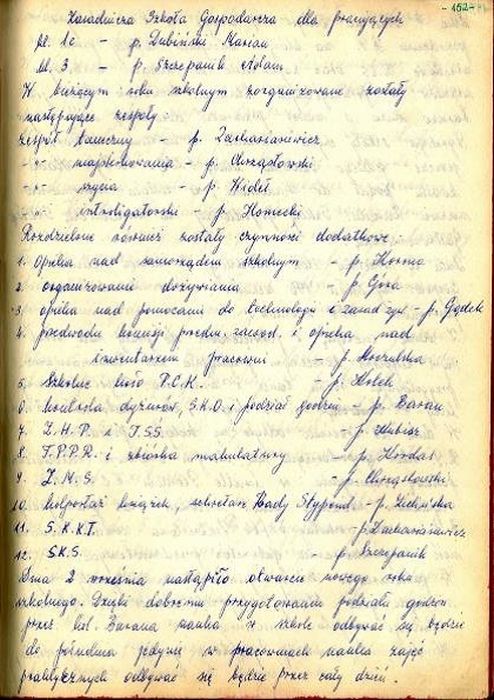 - 152 -
Zasadnicza Szkoła Gospodarcza dla pracujących
kl. 1c - p. Dubiński Marian
kl. 3 - p. Szczepanik Adam
W bieżącym roku szkolnym zorganizowane zostały
następujące zespoły
zespół taneczny - p. Zachariasiewicz
-"- majsterkowania - p. Chrząstowski
-"- szycia - p. Wideł
-"- introligatorski - p. Homecki
Rozdzielone również zostały czynności dodatkowe
1. Opieka nad samorządem szkolnym - p. Kosma
2. organizowanie dożywiania - p. Góra
3. opieka nad pomocami do technologii i zasad żyw. - p. Gądek
4. przewodn. komisji przedm. zawod. i opieka nad
inwentarzem pracowni - p.
5. Szkolne koło P.C.K. - p. Kołek
6. kontrola dyżurów, S.K.O. i podział godzin - p. Baran
7. Z.H.P. i T.S.S. - p. Kubisz
8. T.P.P.R. i zbiórka makulatury - p. Kordas
9. Z.M.S. - p. Chrząstowski
10. kolportaż książek, sekretarz Rady Stypend. - p. Lichińska
11. S.K.K.T. - p. Zachariasiewicz
12. SKS. - p. Szczepanik
Dnia 2 września nastąpiło otwarcie nowego roku
szkolnego. Dzięki dobremu przygotowaniu podziału godzin
przez kol. Barana nauka w szkole odbywać się będzie
do południa jedynie w pracowniach nauka zajęć
praktycznych odbywać się będzie przez cały dzień.